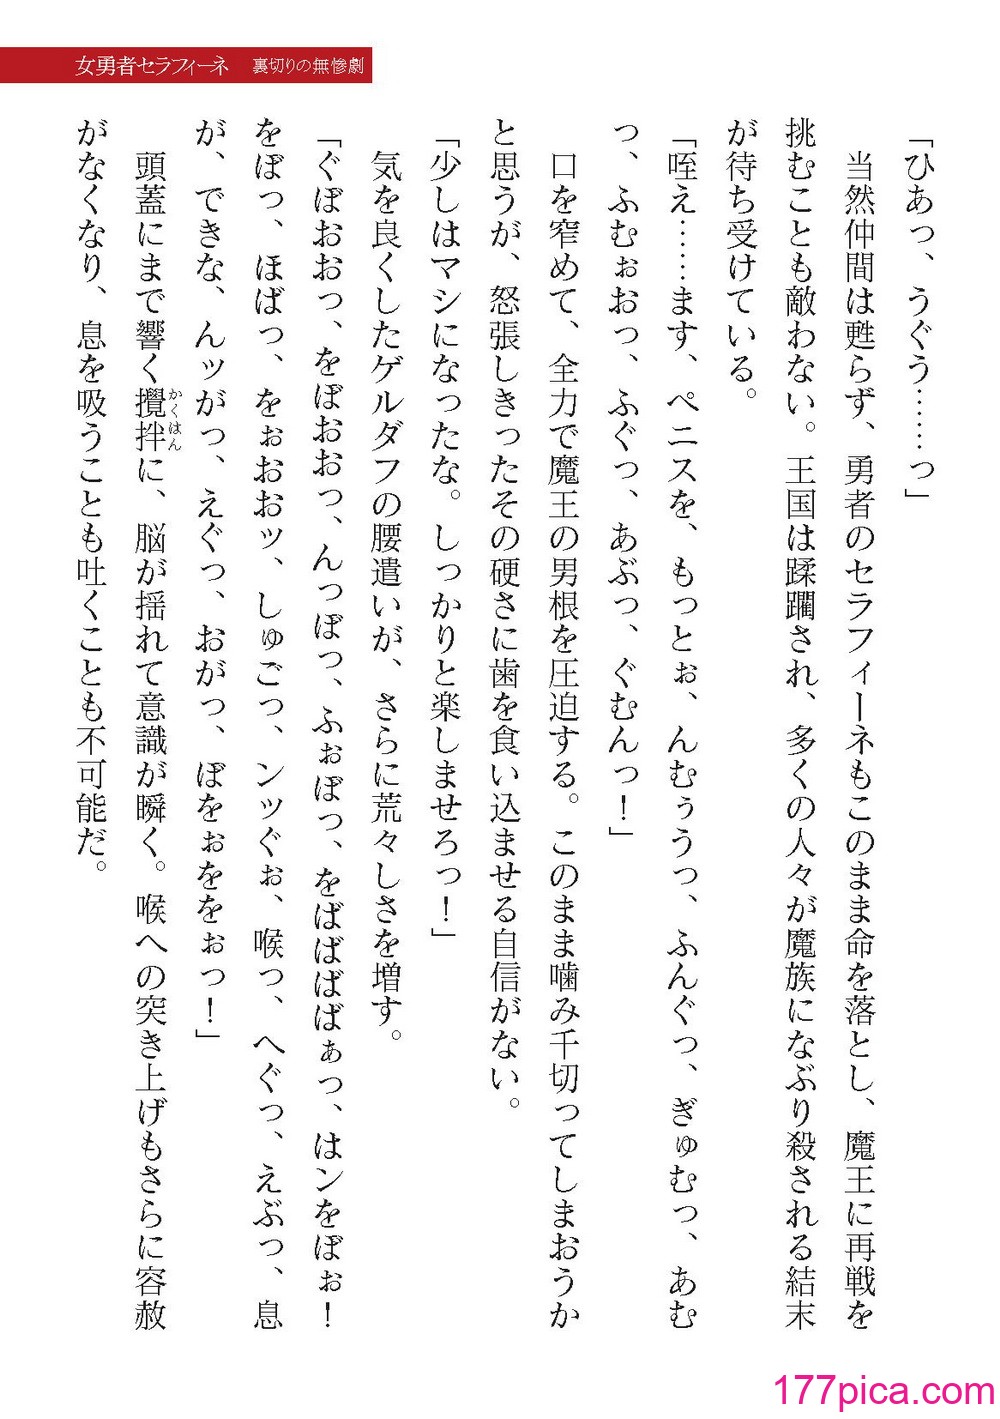 女勇者セラフィーネ 裏切りの無惨劇
「ひあっ、うぐう……っ」
当然仲間は甦らず、勇者のセラフィーネもこのまま命を落とし、魔王に再戦を
挑むことも敵わない。王国は蹂躙され、多くの人々が魔族になぶり殺される結末
が待ち受けている。
「咥え……ます、ペニスを、もっとぉ、んむぅうっ、ふんぐっ、ぎゅむっ、あむ
っ、ふむぉおっ、ふぐっ、あぶっ、ぐむんっ！」
口を窄めて、全力で魔王の男根を圧迫する。このまま噛み千切ってしまおうか
と思うが、怒張しきったその硬さに歯を食い込ませる自信がない。
「少しはマシになったな。しっかりと楽しませろっ！」
気を良くしたゲルダフの腰遣いが、さらに荒々しさを増す。
「ぐぼおおっ、をぼおおっ、んっぽっ、ふぉぼっ、をばばばばぁっ、はンをぼぉ！
をぼっ、ほばっ、をぉおおッ、しゅごっ、ンッぐぉ、喉っ、へぐっ、えぶっ、息
が、できな、んッがっ、えぐっ、おがっ、ぼをぉををぉっ！」
頭蓋にまで響く攪拌に、脳が揺れて意識が瞬く。喉への突き上げもさらに容赦
かくはん
がなくなり、息を吸うことも吐くことも不可能だ。
177pica.com